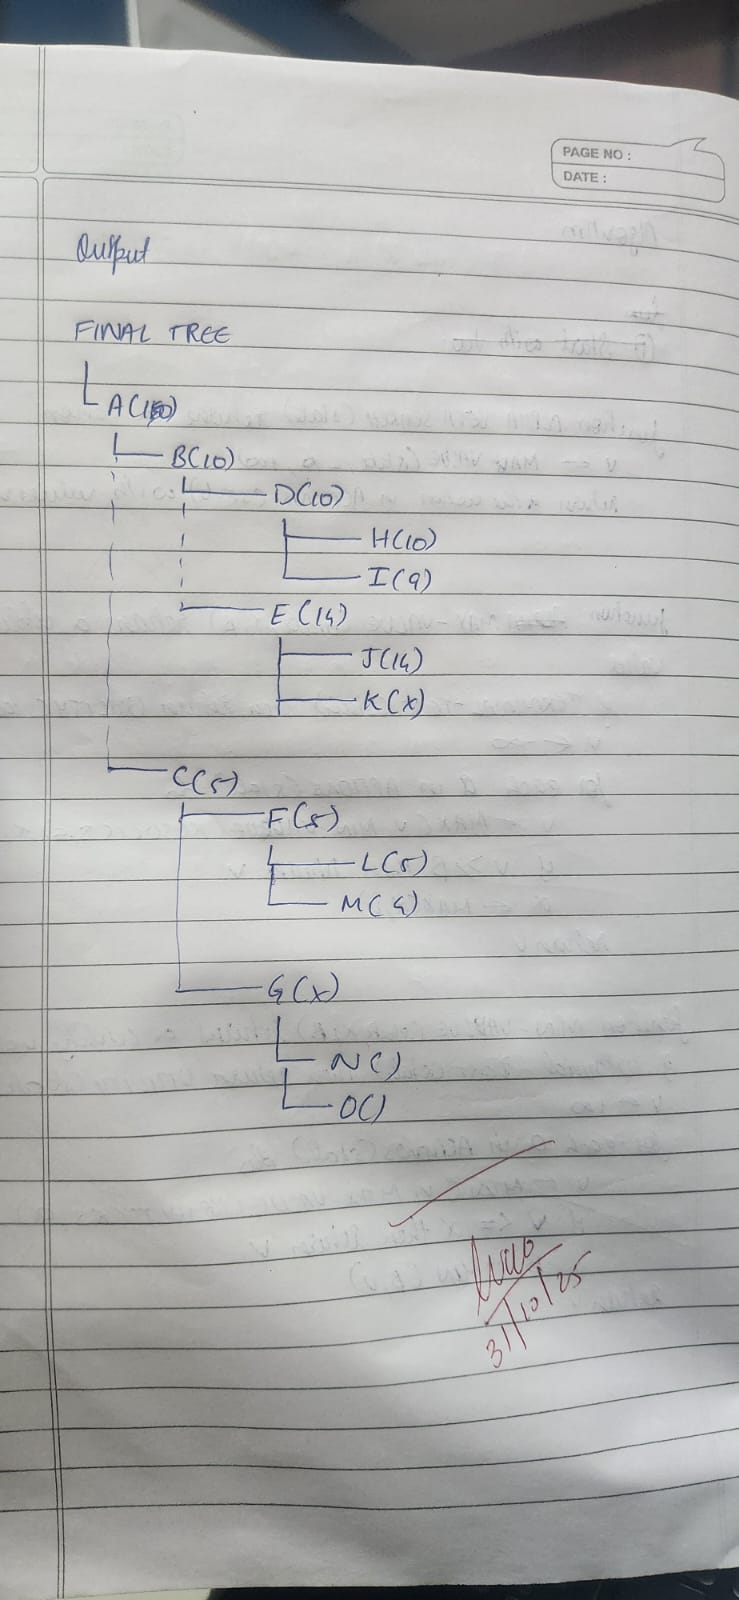 PAGE NO :
DATE :
Output
FINAL TREE
A(10)
B(10)
D(10)
H(10)
I(9)
E(14)
J(14)
K(X)
C(5)
F(5)
L(5)
M(4)
G(X)
N()
O()
31/10/25